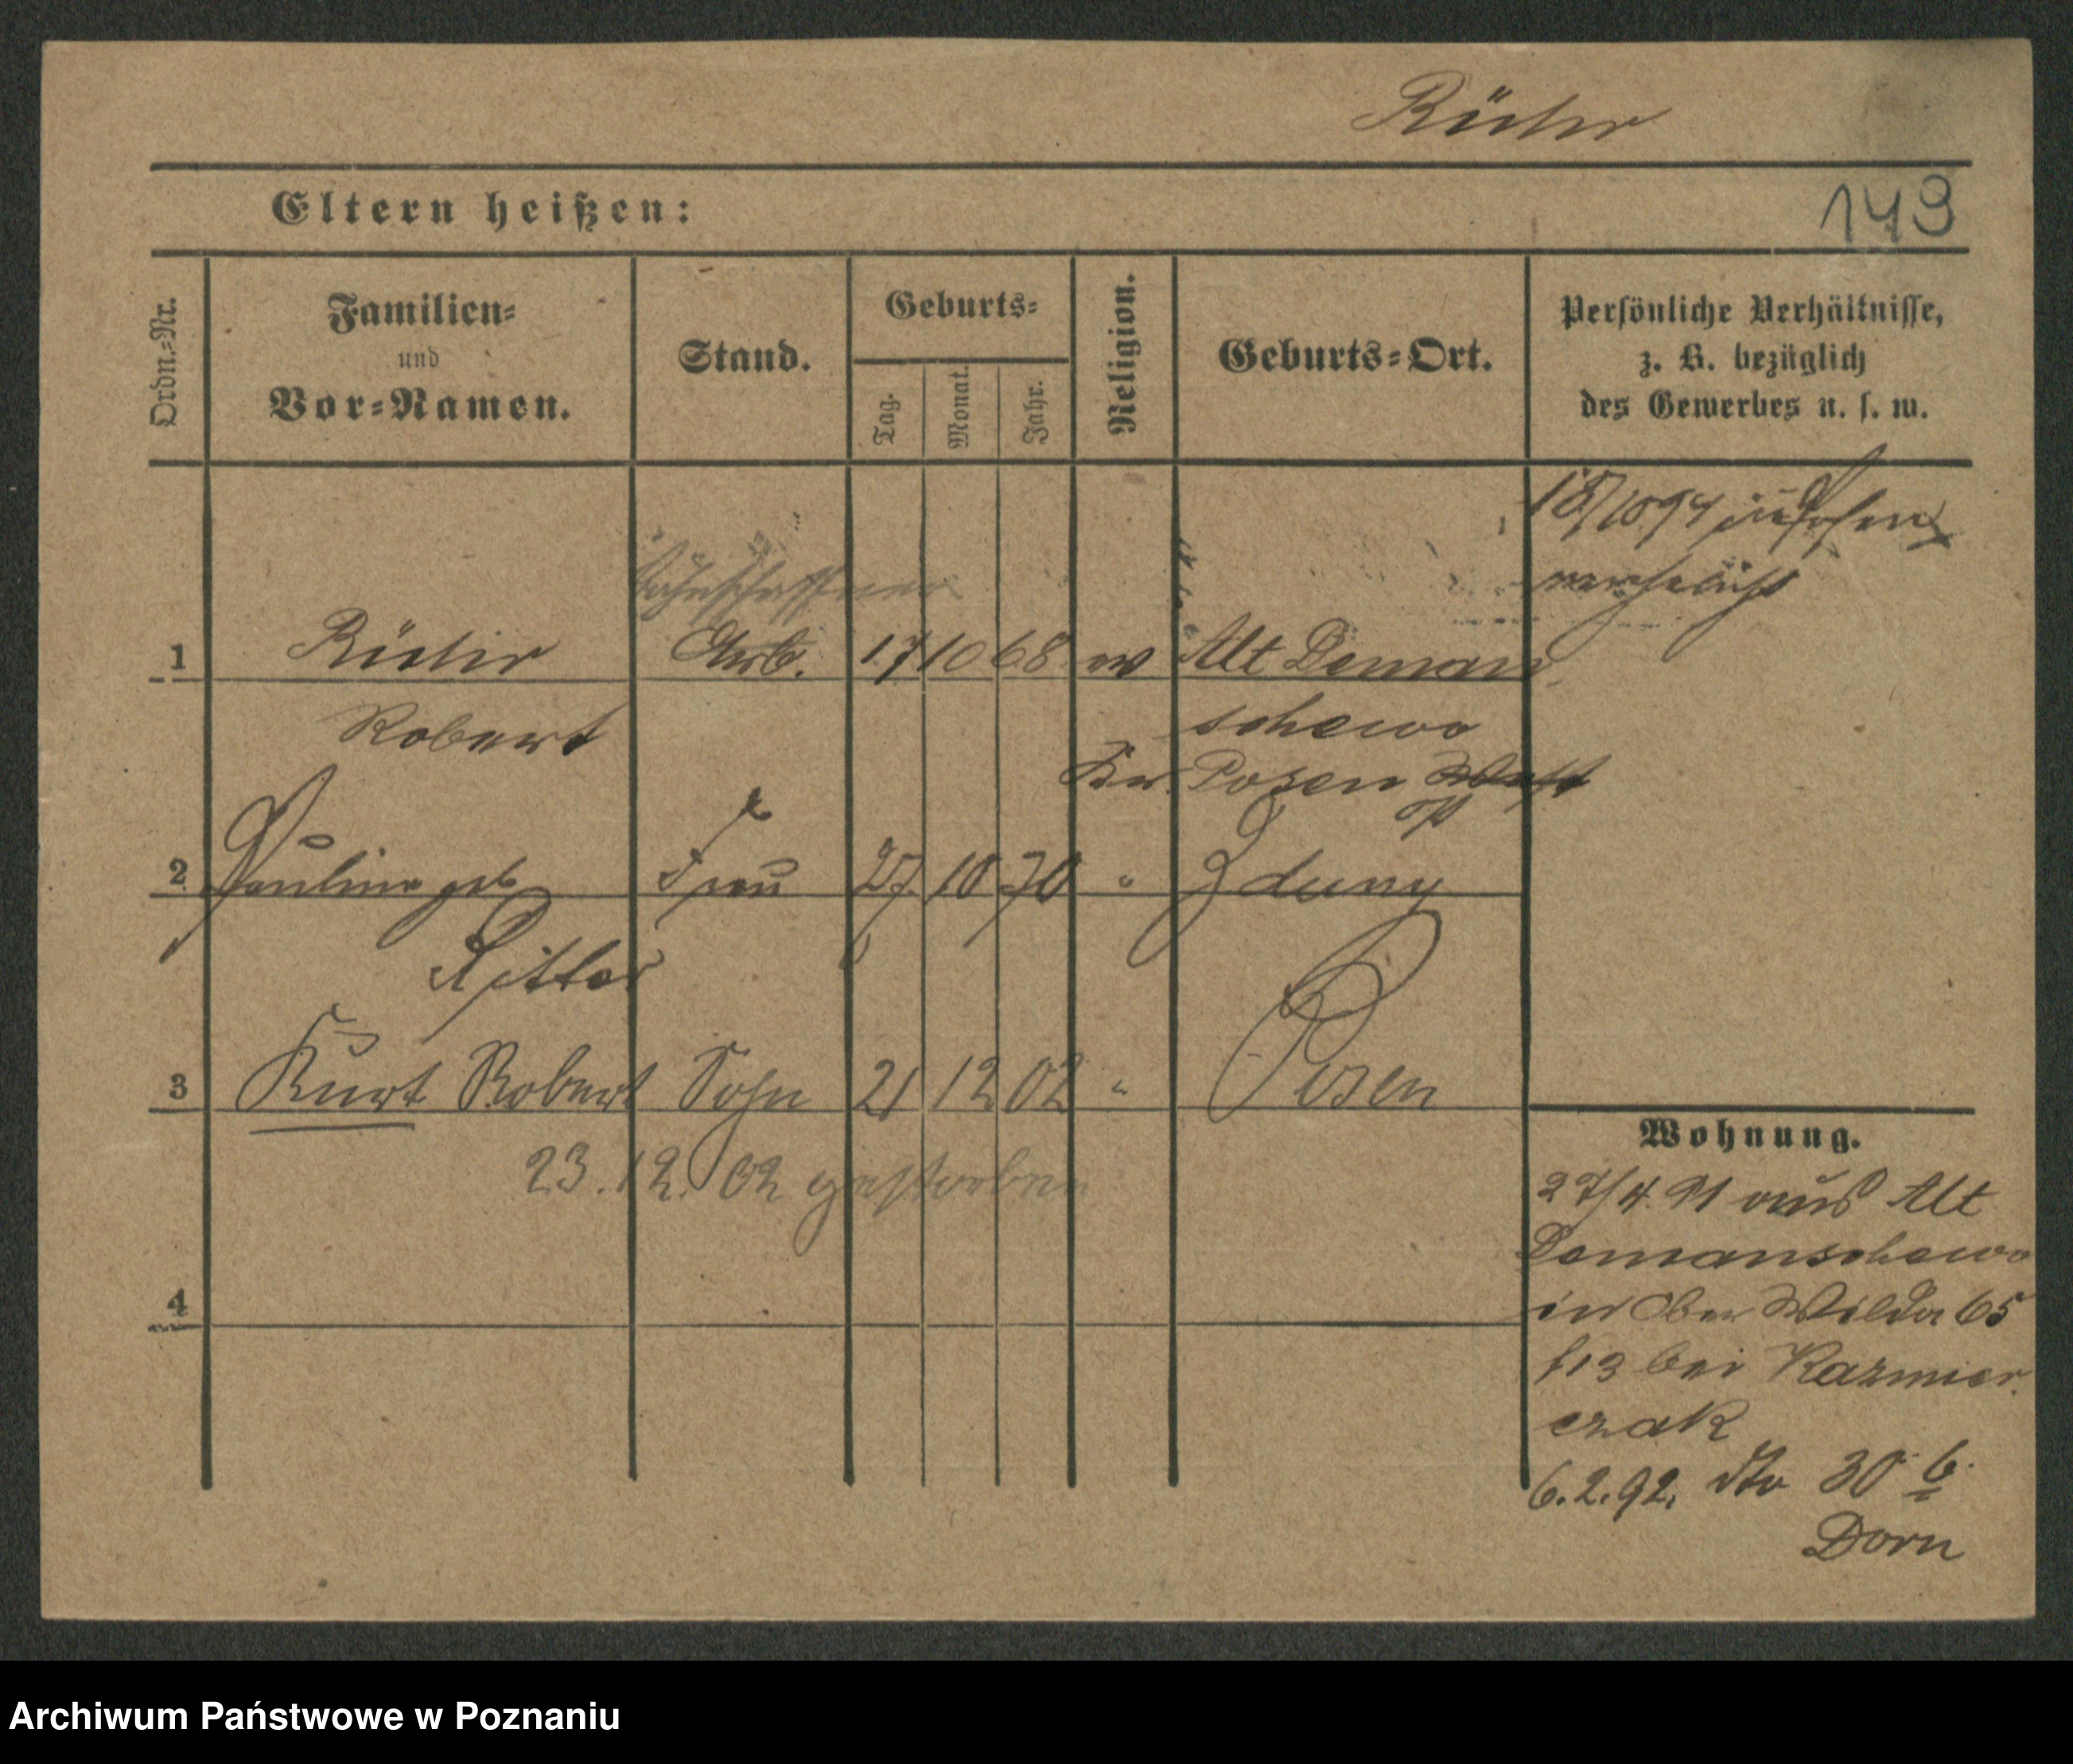 149
Eltern heißen:
Ordn.-Nr.
Familien-
und
Vor-Namen.
Stand.
Geburts-
Tag.
Monat.
Jahr.
Religion.
Geburts-Ort.
Persönliche Verhältnisse,
z. B. bezüglich
des Gewerbes u. s. w.
18/10 94 in Posen
verehelicht
1 Arb. 17 10 68 ev Alt Deman
Robert schewo
Kr. Posen West
2 Pauline geb Frau 27. 10 70 " Zduny
Ritter
3 Kurt Robert Sohn 21 12 02 " Posen
23.12.02 gestorben
4
Wohnung.
27/4. 91 aus Alt
Demanschewo
in Ober Wilda 65
bei Kazmier
czak
6.2.92. dto 30 b.
Dorn
Archiwum Państwowe w Poznaniu